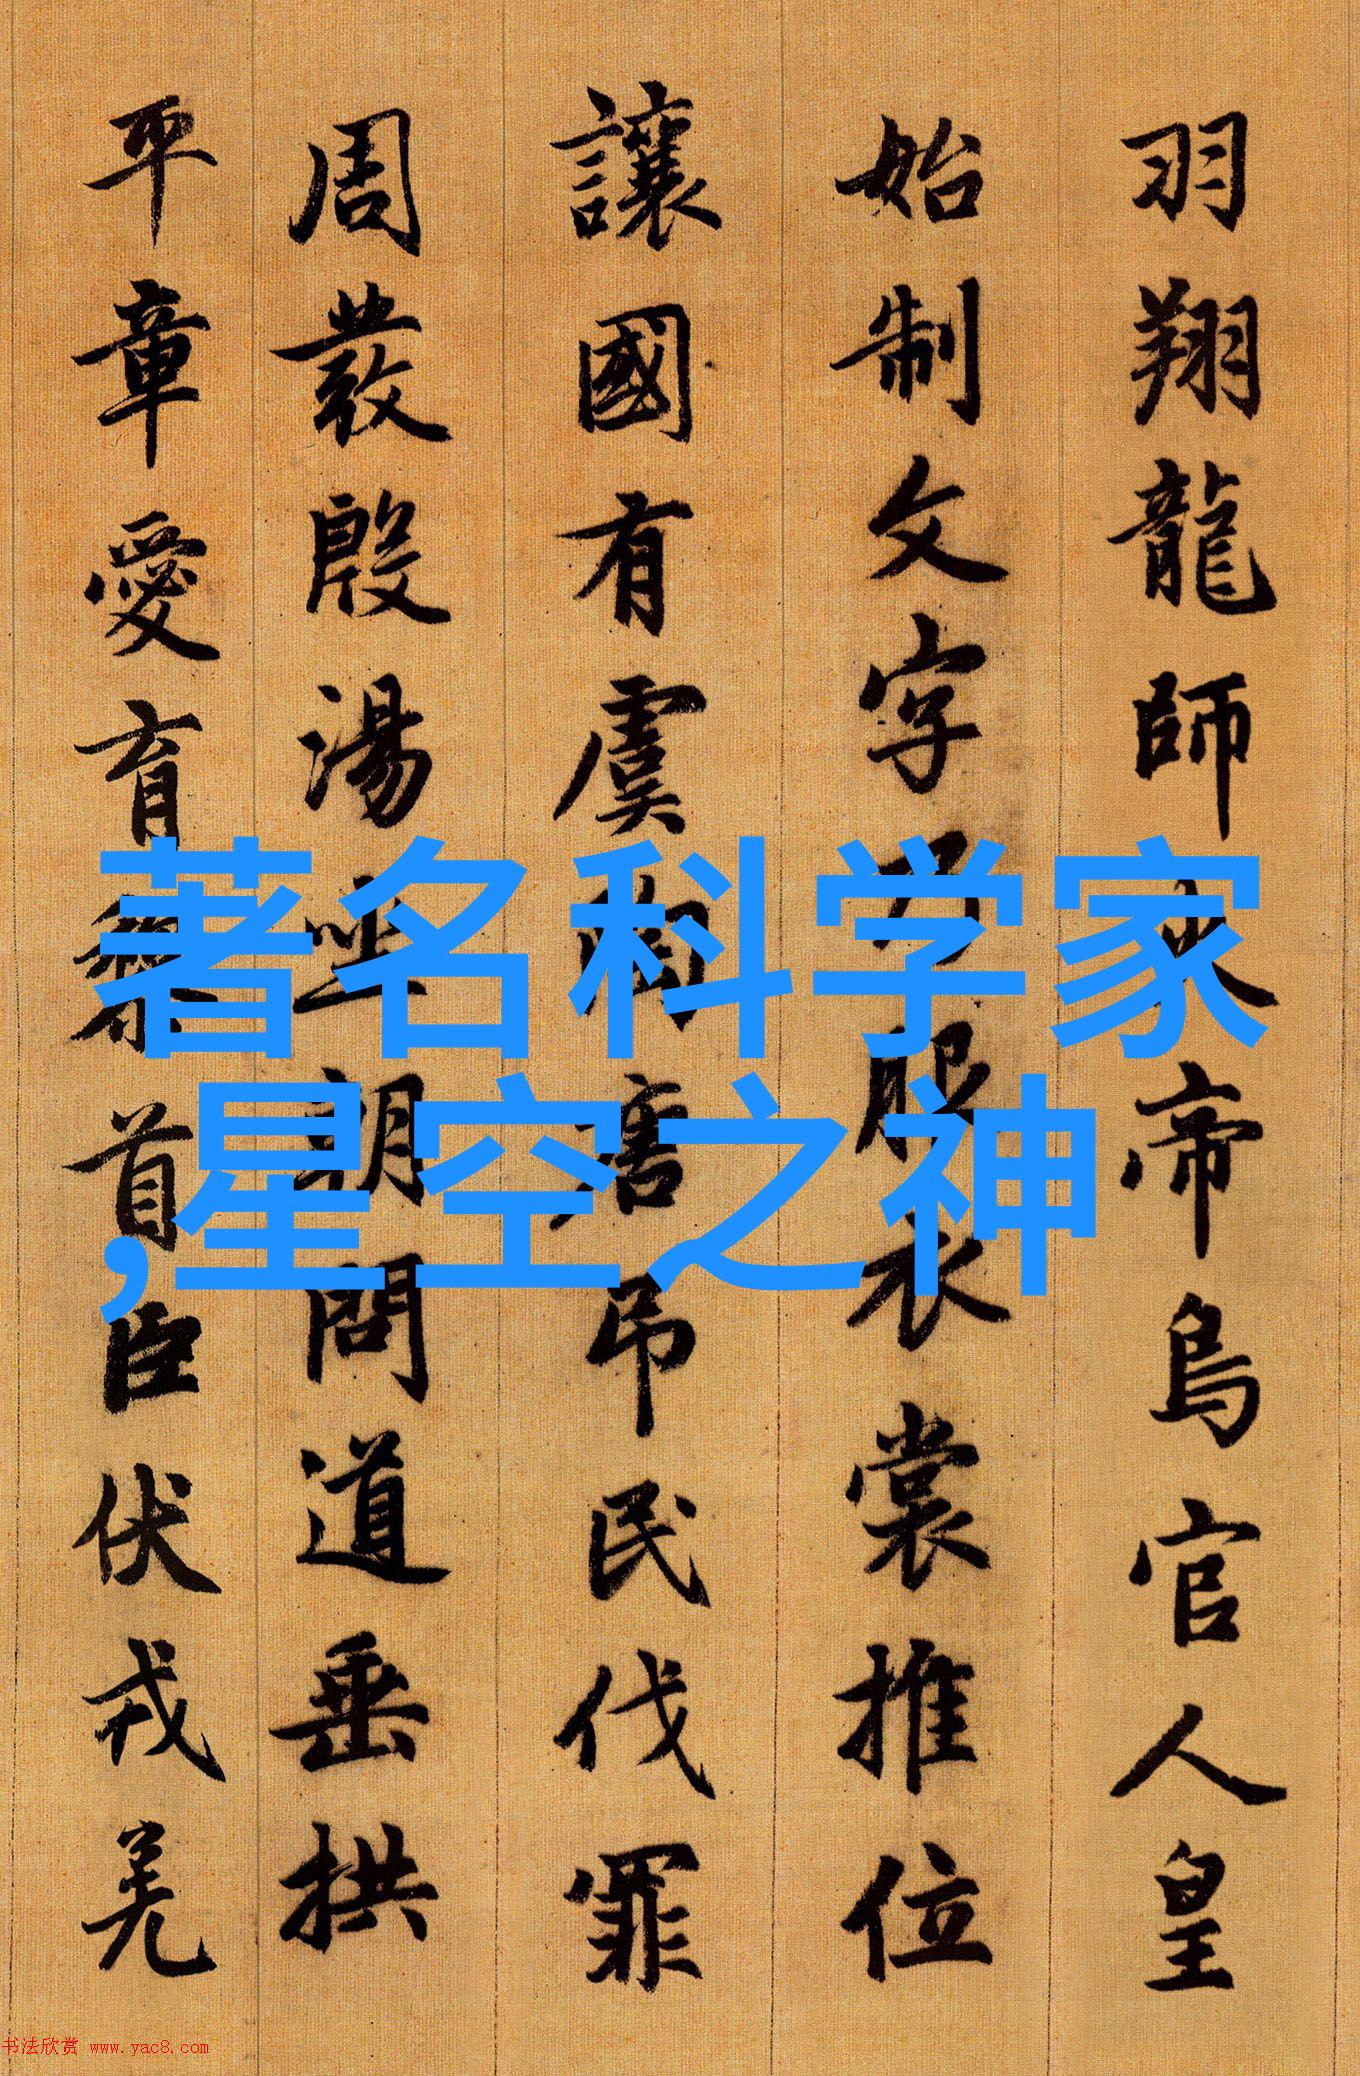 羽翔龍師火帝鳥官人皇
始制文字乃服衣裳推位
讓國有虞陶唐吊民伐罪
周發殷湯坐朝問道垂拱
平章愛育黎首臣伏戎羌
著名科学家
,星空之神
书法欣赏 www.yac8.com